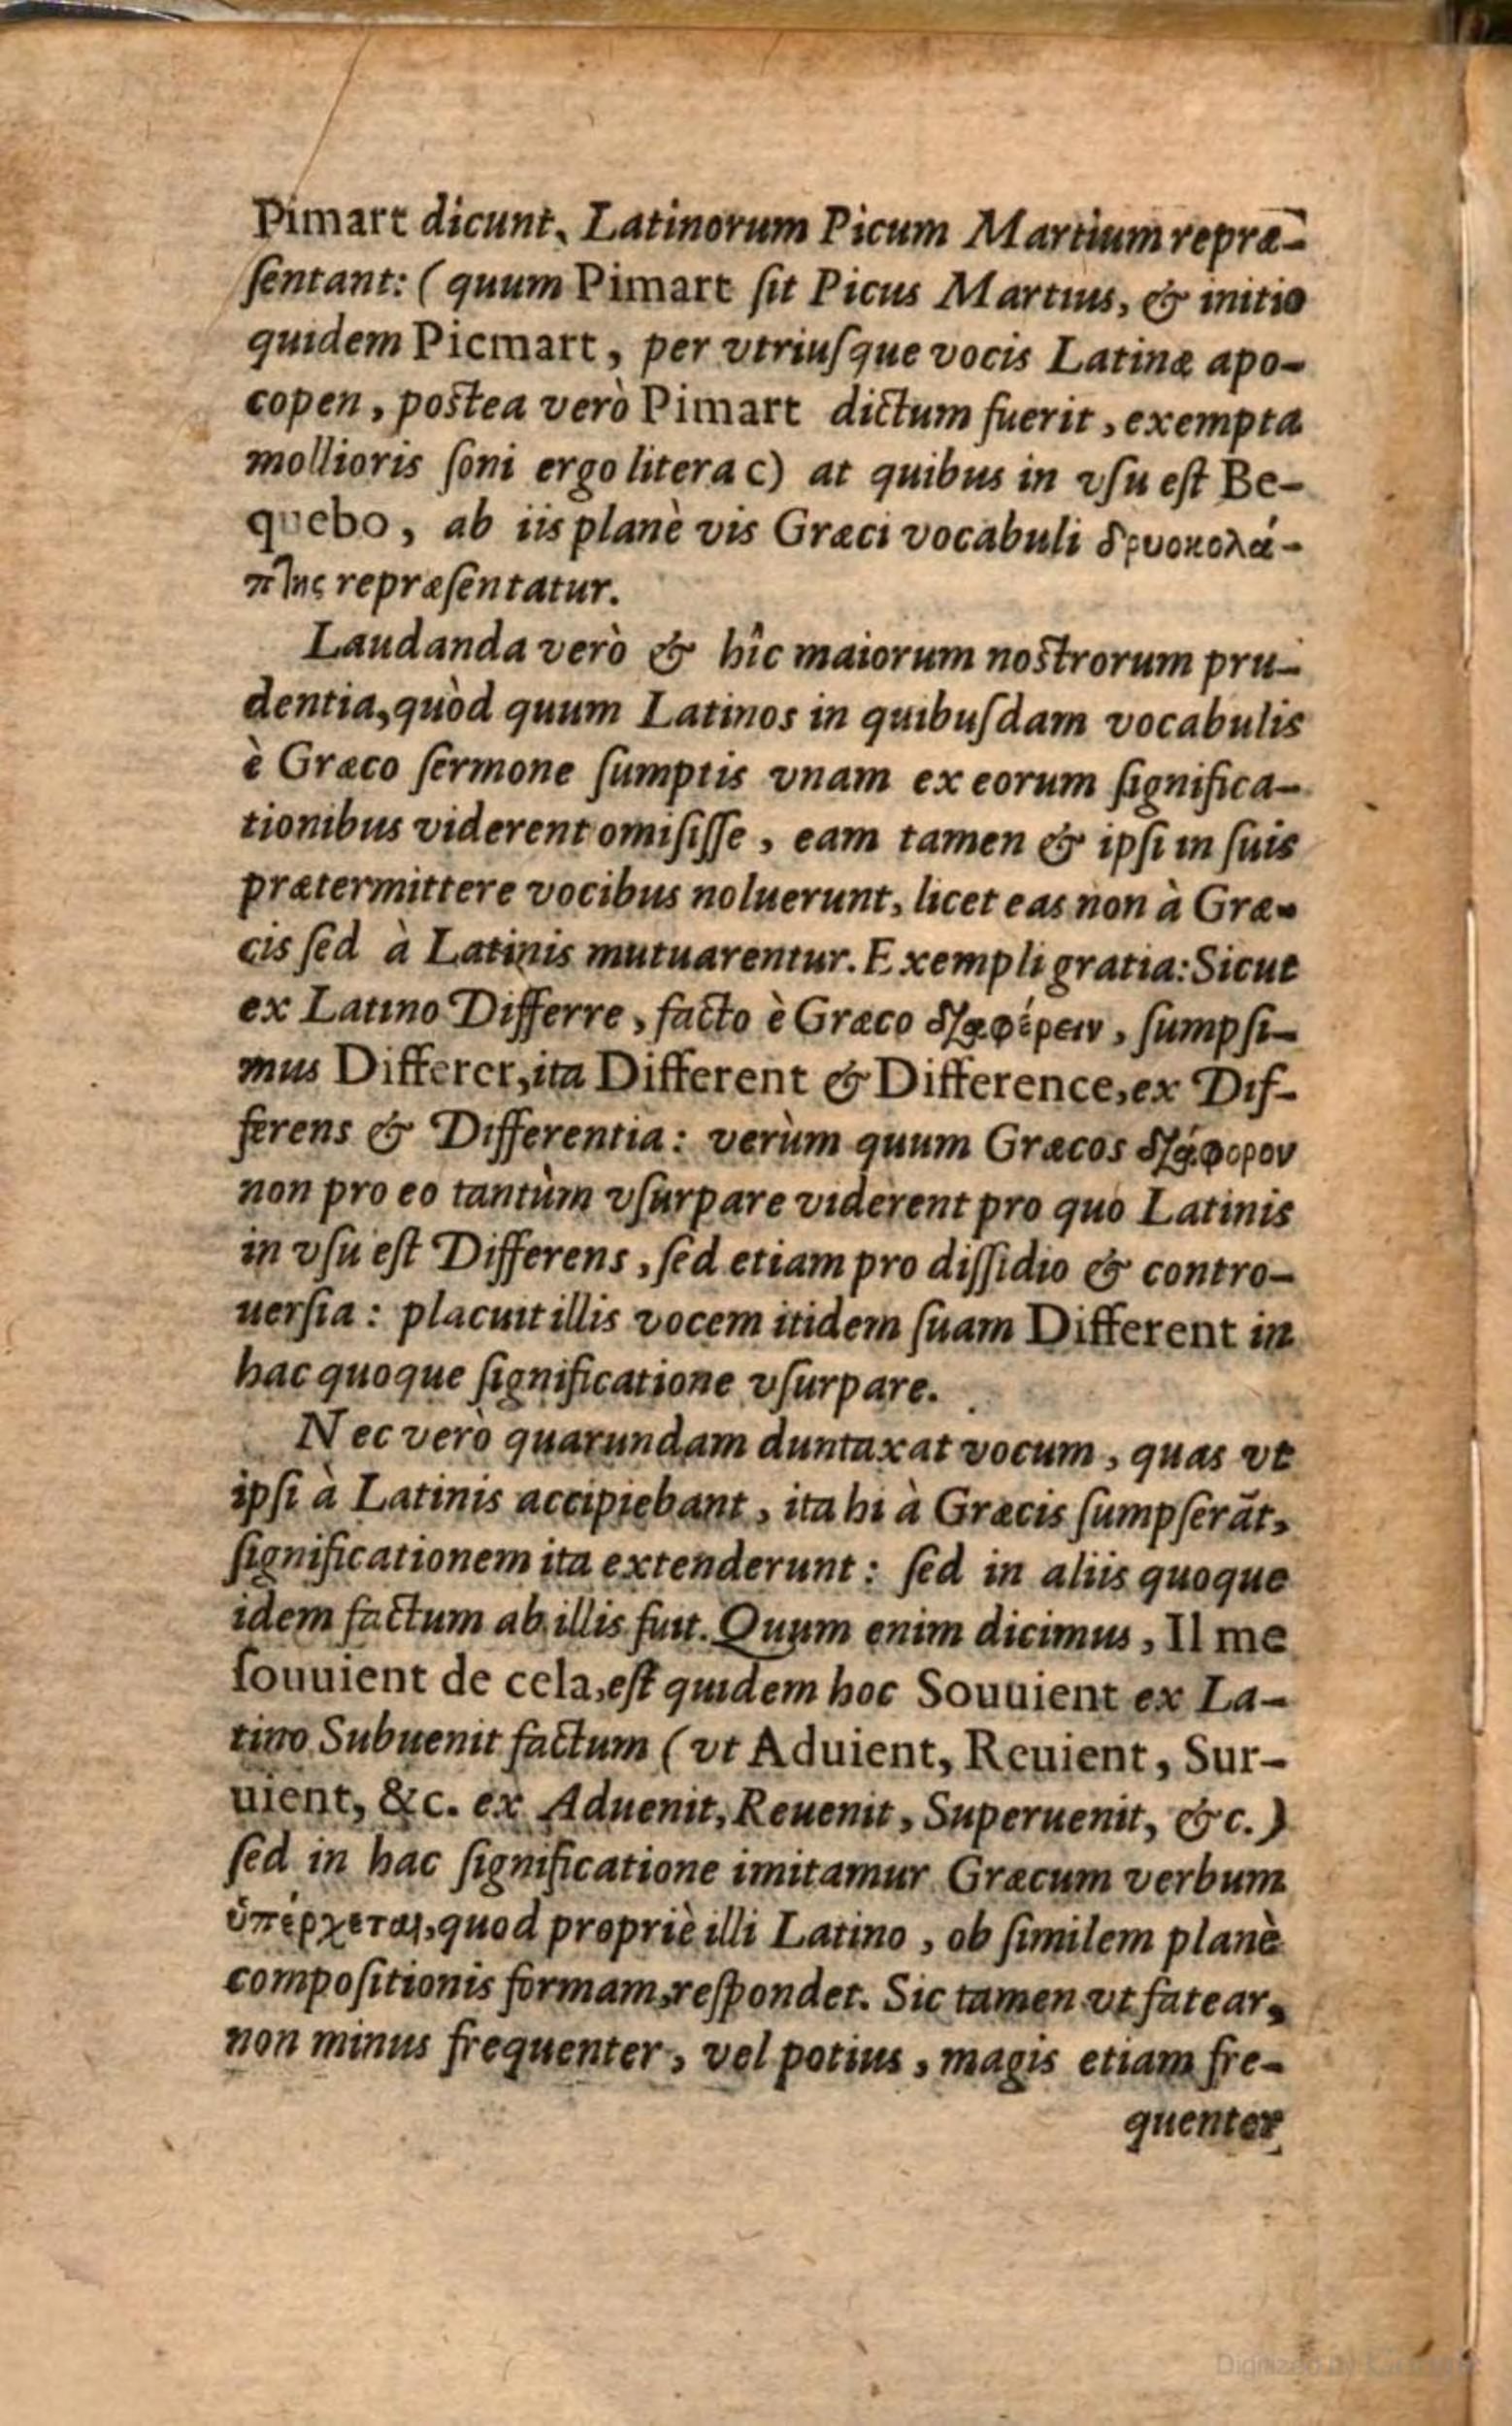 Pimart dicunt, Latinorum Picum Martium repræ-
ſentant: (quum Pimart ſit Picus Martius, & initio
quidem Picmart, per vtriuſque vocis Latinæ apo-
copen, poſtea verò Pimart dictum fuerit, exempta
mollioris ſoni ergo litera c) at quibus in vſu eſt Be-
quebo, ab iis planè vis Græci vocabuli δρυοκολά-
πτης repræſentatur.
Laudanda verò & hîc maiorum noſtrorum pru-
dentia, quòd quum Latinos in quibuſdam vocabulis
è Græco ſermone ſumptis vnam ex eorum ſignifica-
tionibus viderent omiſiſſe, eam tamen & ipſi in ſuis
prætermittere vocibus noluerunt, licet eas non à Græ-
cis ſed à Latinis mutuarentur. Exempli gratia: Sicut
ex Latino Differre, facto è Græco διαφέρειν, ſumpſi-
mus Differer, ita Different & Difference, ex Dif-
ferens & Differentia: verùm quum Græcos διάφορον
non pro eo tantùm vſurpare viderent pro quo Latinis
in vſu eſt Differens, ſed etiam pro diſſidio & contro-
uerſia: placuit illis vocem itidem ſuam Different in
hac quoque ſignificatione vſurpare.
Nec verò quarundam duntaxat vocum, quas vt
ipſi à Latinis accipiebant, ita hi à Græcis ſumpſerāt,
ſignificationem ita extenderunt: ſed in aliis quoque
idem factum ab illis fuit. Quum enim dicimus, Il me
ſouuient de cela, eſt quidem hoc Souuient ex La-
tino Subuenit factum (vt Aduient, Reuient, Sur-
uient, &c. ex Aduenit, Reuenit, Superuenit, &c.)
ſed in hac ſignificatione imitamur Græcum verbum
ὑπέρχεται, quod propriè illi Latino, ob ſimilem planè
compoſitionis formam, reſpondet. Sic tamen vt fatear,
non minus frequenter, vel potius, magis etiam fre-
quenter